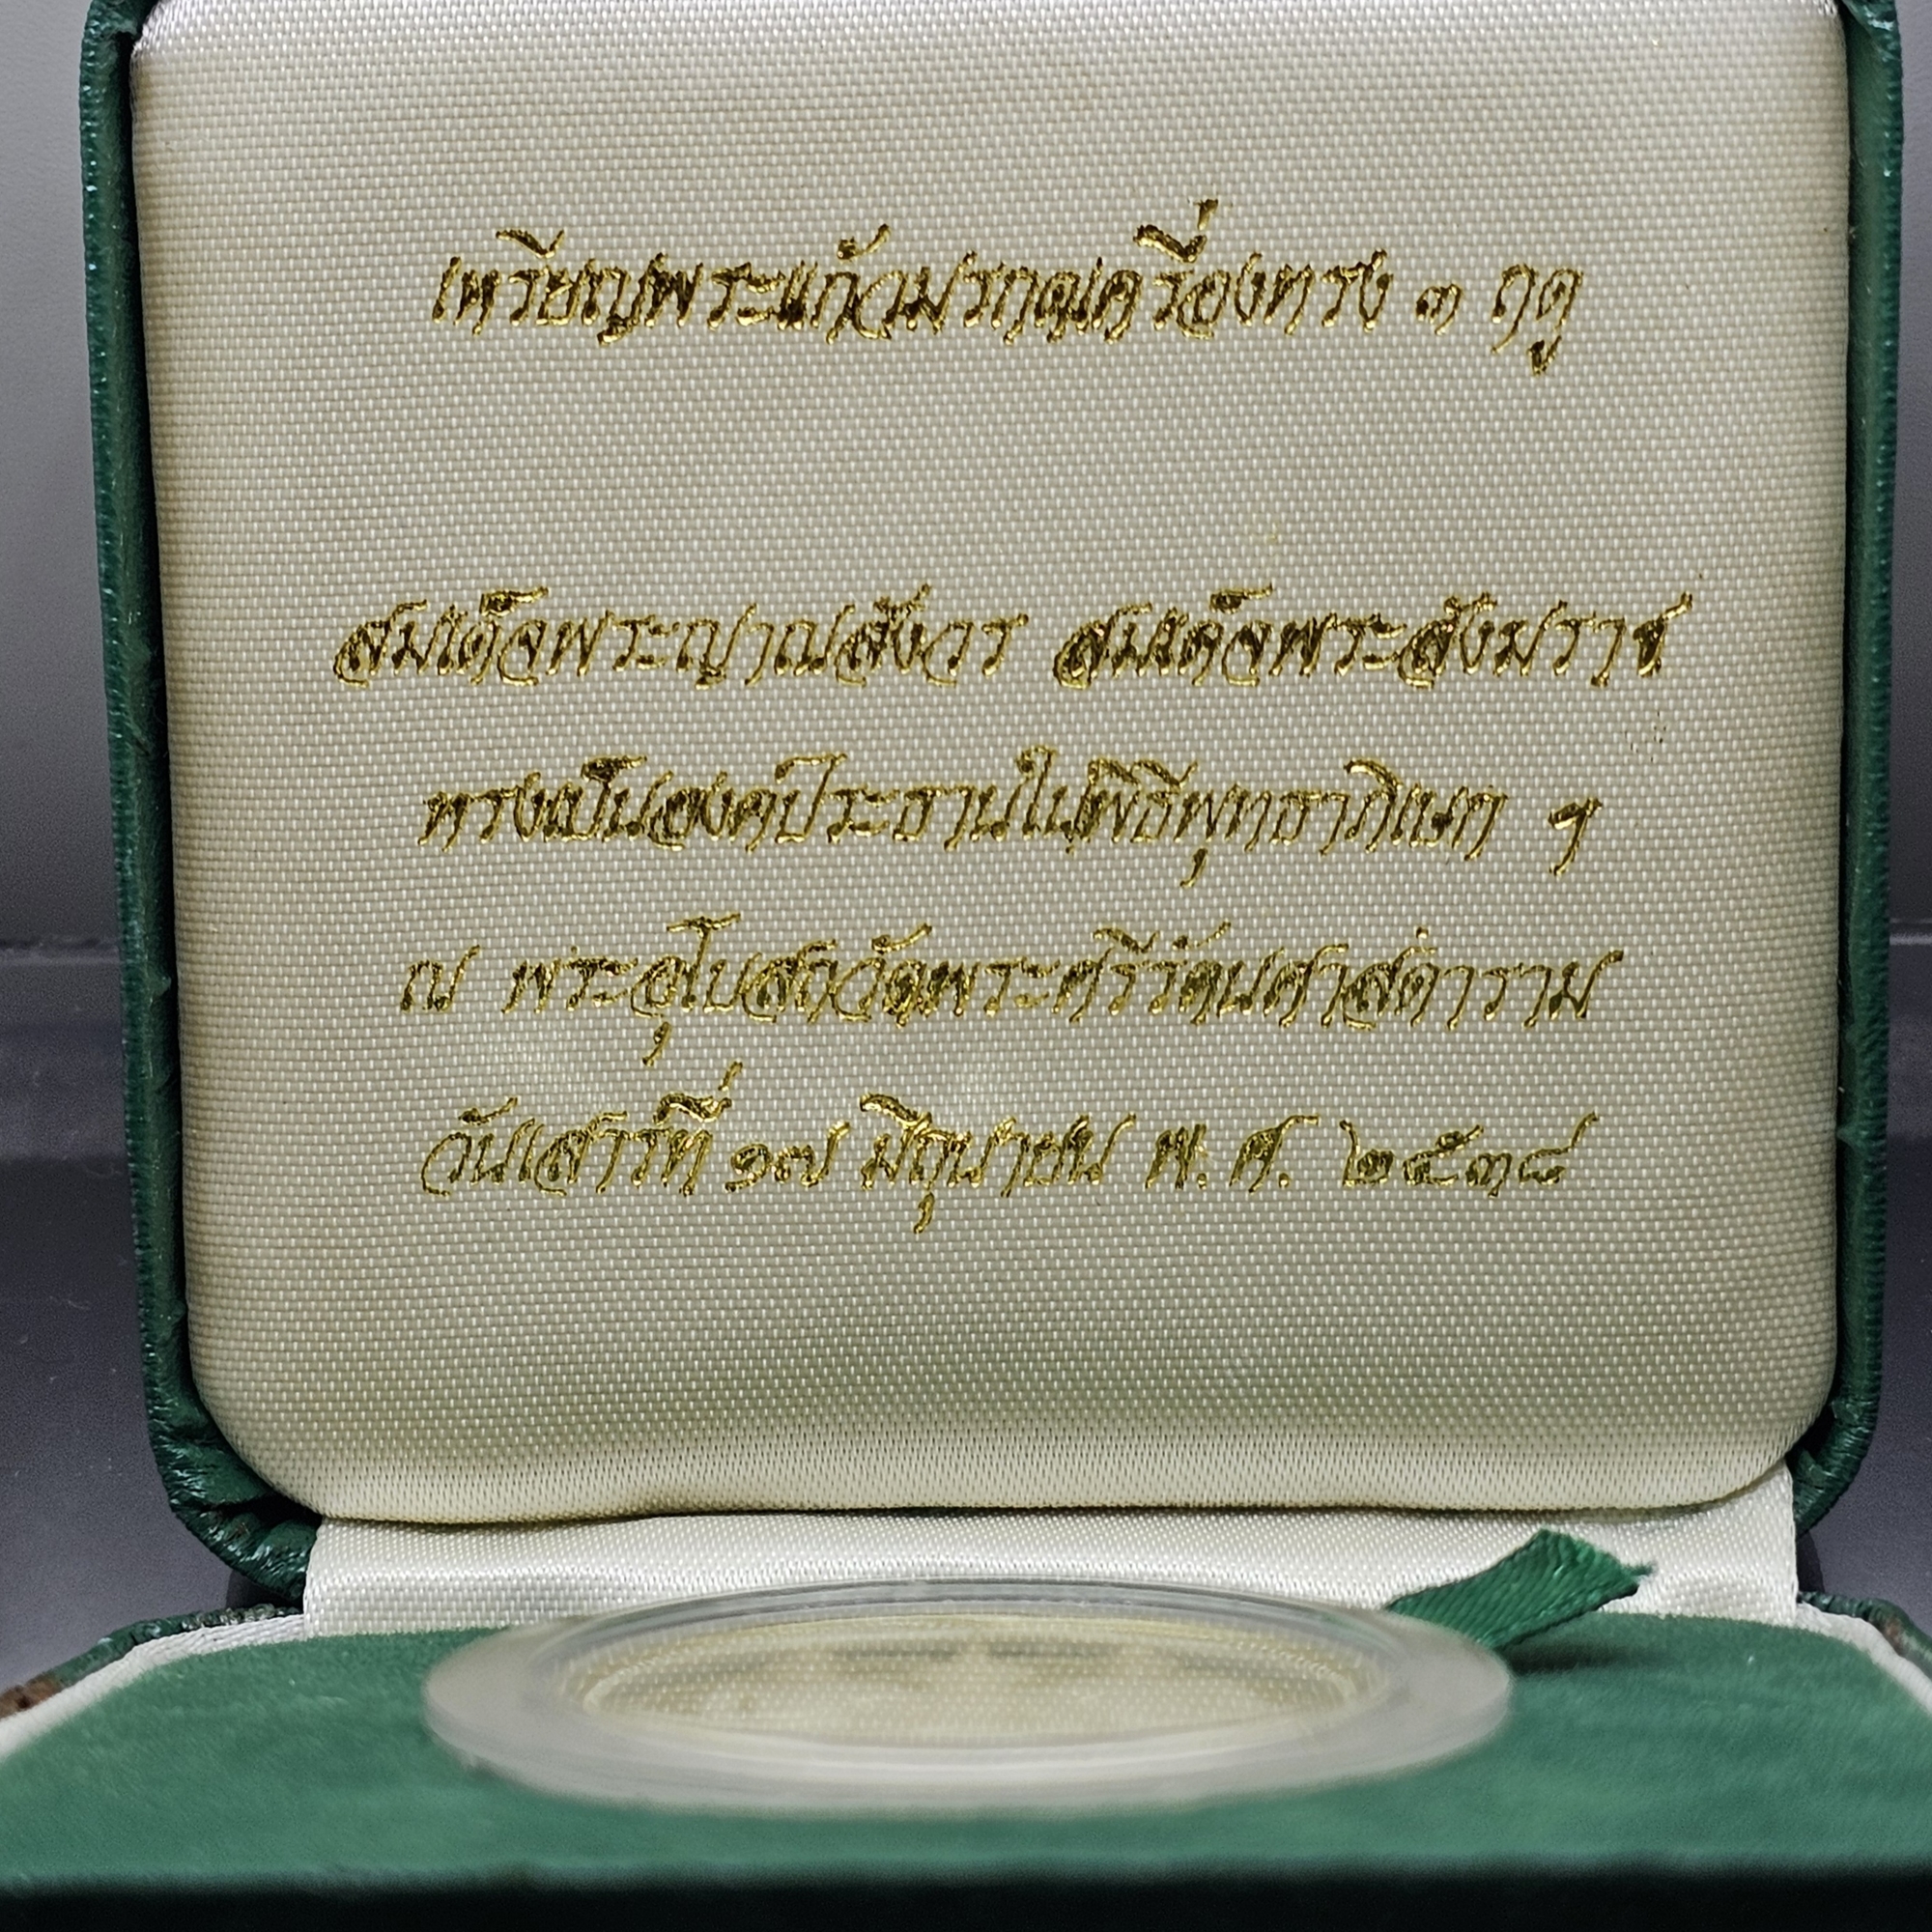 เหรียญพระแก้วมรกตเครื่องทรง ๓ ฤดู
สมเด็จพระญาณสังวร สมเด็จพระสังฆราช
ทรงเป็นองค์ประธานในพิธีพุทธาภิเษก ฯ
ณ พระอุโบสถวัดพระศรีรัตนศาสดาราม
วันเสาร์ที่ ๑๗ มิถุนายน พ.ศ. ๒๕๓๘